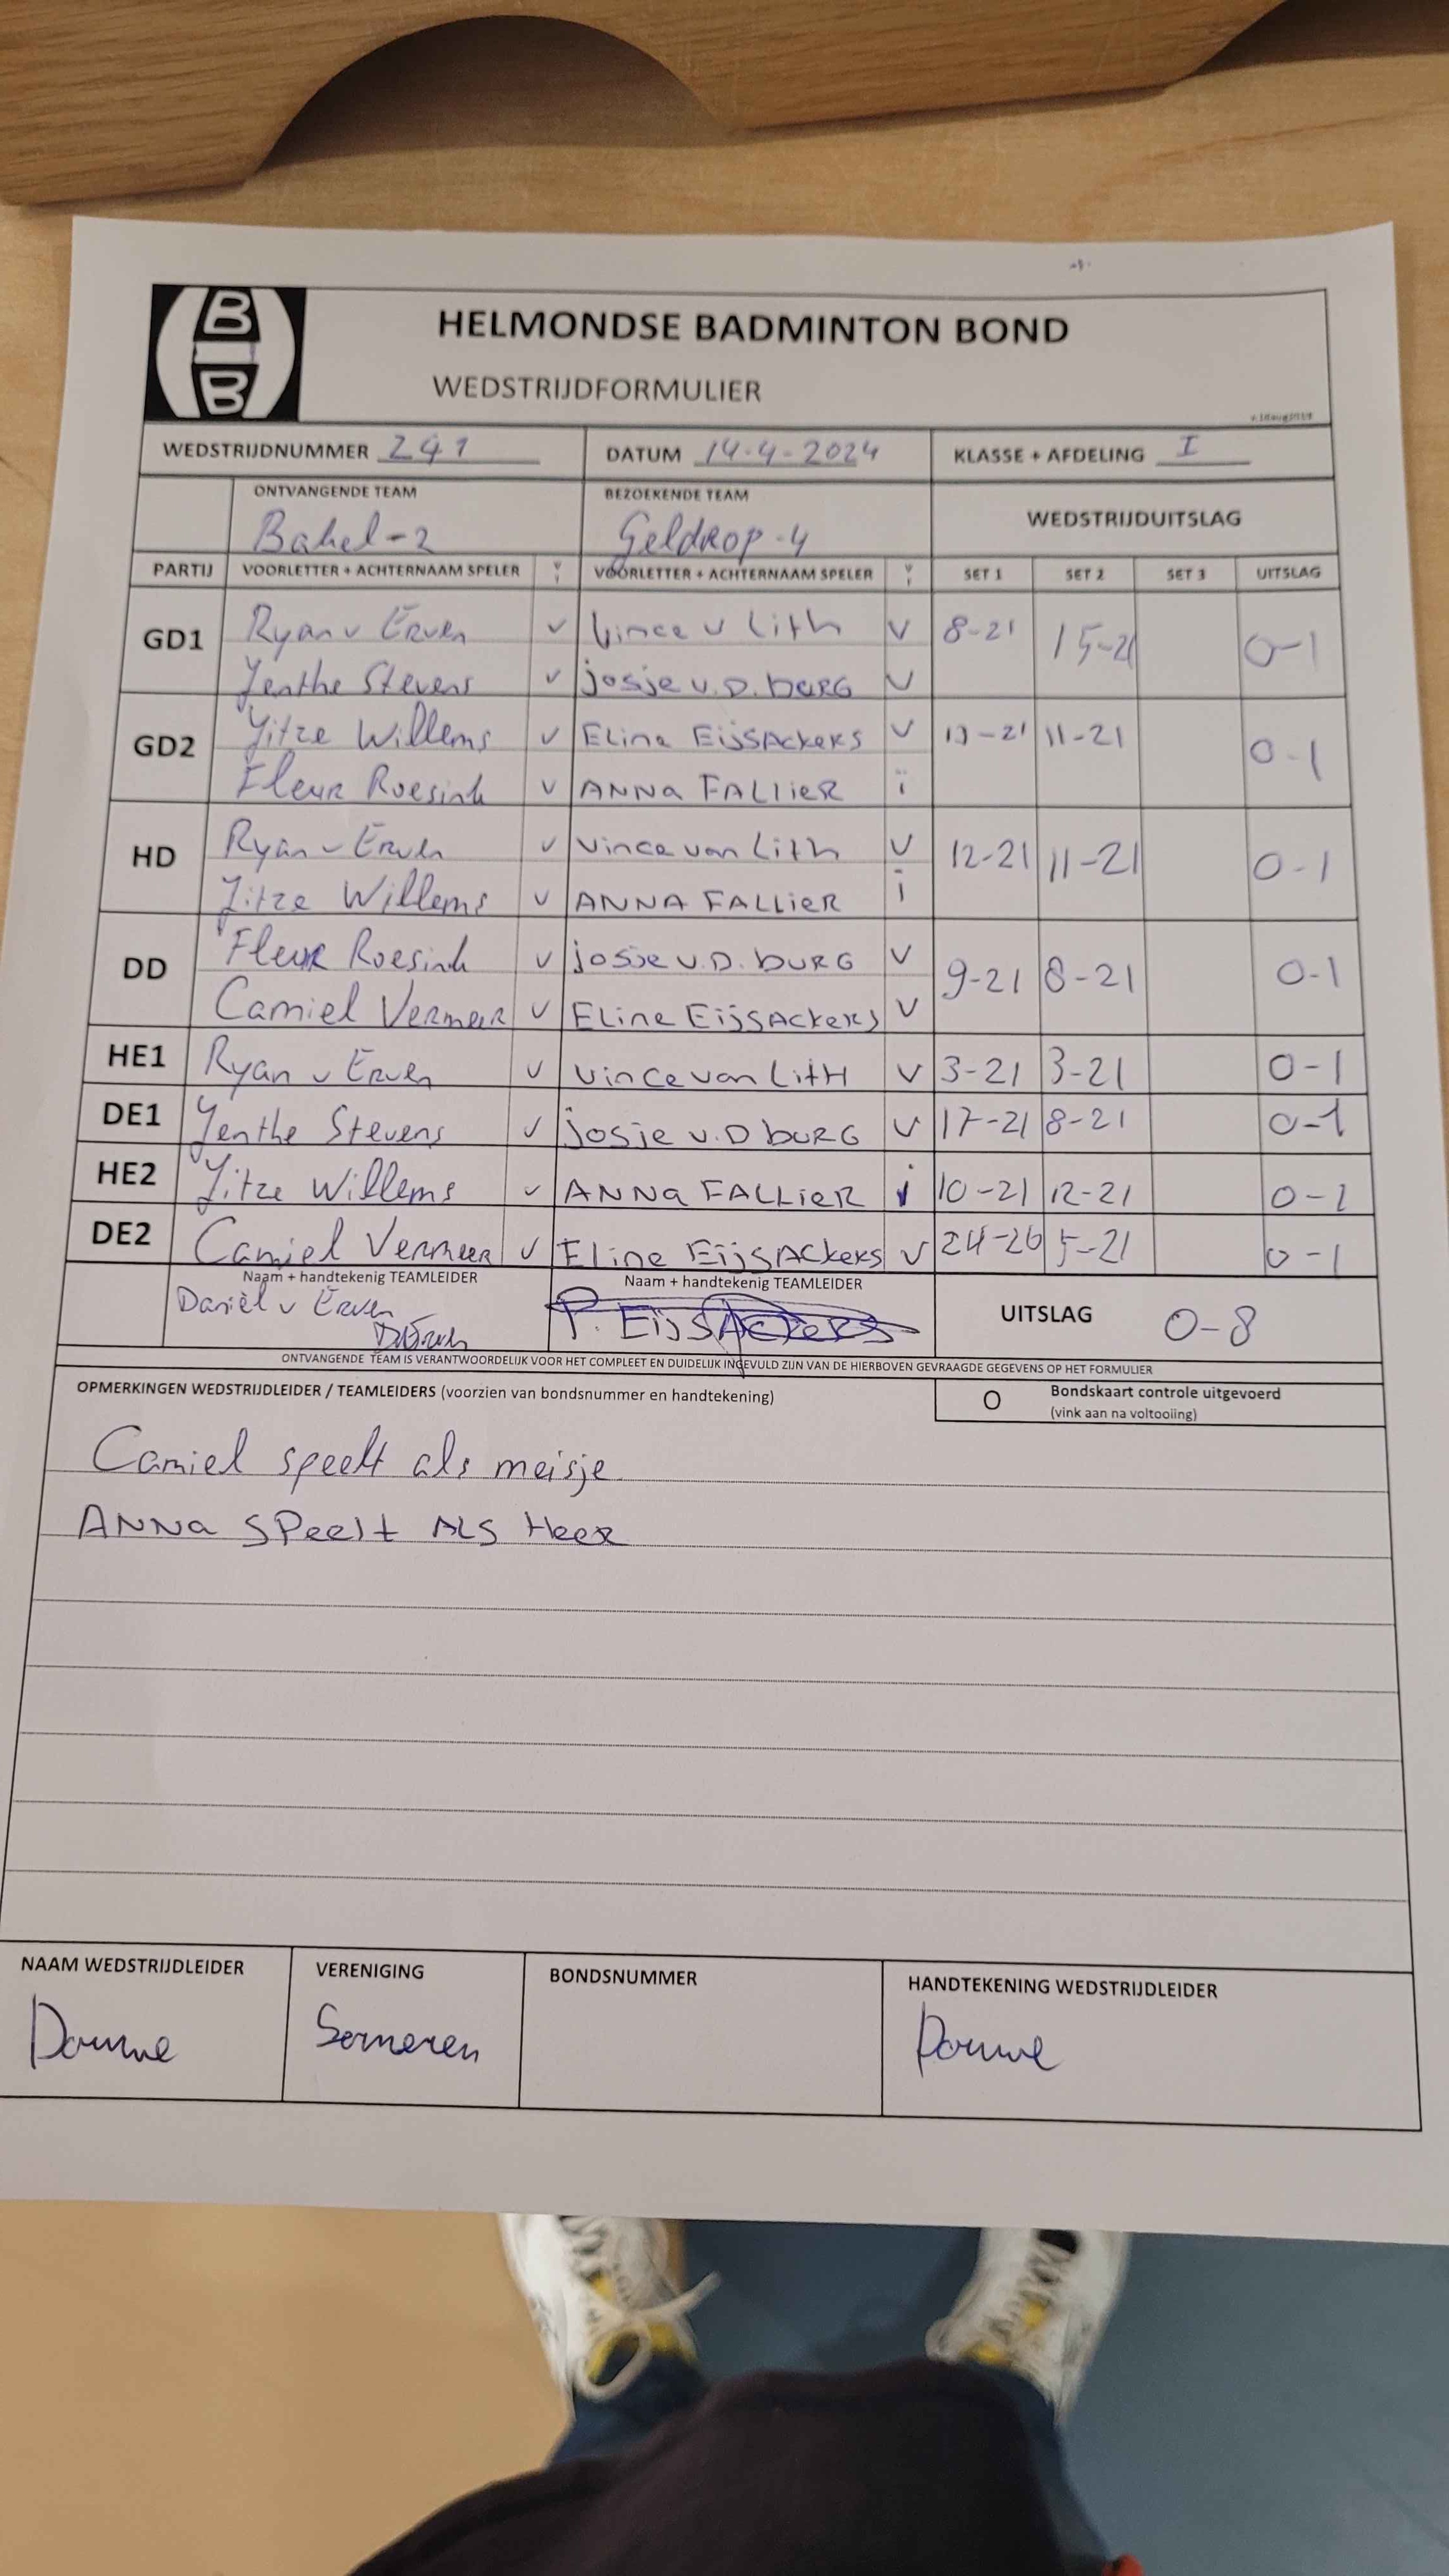 B
B
HELMONDSE BADMINTON BOND
WEDSTRIJDFORMULIER
WEDSTRIJDNUMMER 241 DATUM 14-4-2024 KLASSE + AFDELING I
ONTVANGENDE TEAM BEZOEKENDE TEAM WEDSTRIJDUITSLAG
Bakel-2 Geldrop-4
PARTIJ VOORLETTER + ACHTERNAAM SPELER V I VOORLETTER + ACHTERNAAM SPELER V I SET 1 SET 2 SET 3 UITSLAG
GD1 Ryan v Erven v Vince v Lith v 8-21 15-21 0-1
Yenthe Stevens v josje v.D. burG v
GD2 Yitze Willems v Eline EijsAckers v 11-21 0-1
Fleur Roesink v ANNa FAllieR i
HD Ryan v Erven v Vince van Lith v 12-21 11-21 0-1
Yitze Willems v ANNA FALLieR i
DD Fleur Roesink v josje v.D. burG v 9-21 8-21 0-1
Camiel Vermeer v Eline EijsAckers v
HE1 Ryan v Erven v Vince van LitH v 3-21 3-21 0-1
DE1 Yenthe Stevens v josje v.D burG v 17-21 8-21 0-1
HE2 Yitze Willems v ANNa FALLieR i 10-21 12-21 0-1
DE2 Camiel Vermeer v Eline EijsAckers v 24-26 5-21 0-1
Naam + handtekenig TEAMLEIDER Naam + handtekenig TEAMLEIDER UITSLAG 0-8
Daniël v Erven P. EijsAckers
ONTVANGENDE TEAM IS VERANTWOORDELIJK VOOR HET COMPLEET EN DUIDELIJK INGEVULD ZIJN VAN DE HIERBOVEN GEVRAAGDE GEGEVENS OP HET FORMULIER
OPMERKINGEN WEDSTRIJDLEIDER / TEAMLEIDERS (voorzien van bondsnummer en handtekening) O Bondskaart controle uitgevoerd
(vink aan na voltooiing)
Camiel speelt als meisje
ANNa SPeelt ALS Heer
NAAM WEDSTRIJDLEIDER VERENIGING BONDSNUMMER HANDTEKENING WEDSTRIJDLEIDER
Douwe Someren Douwe